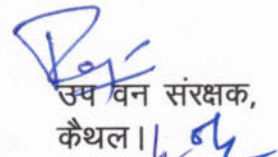 उप वन संरक्षक,
कैथल।